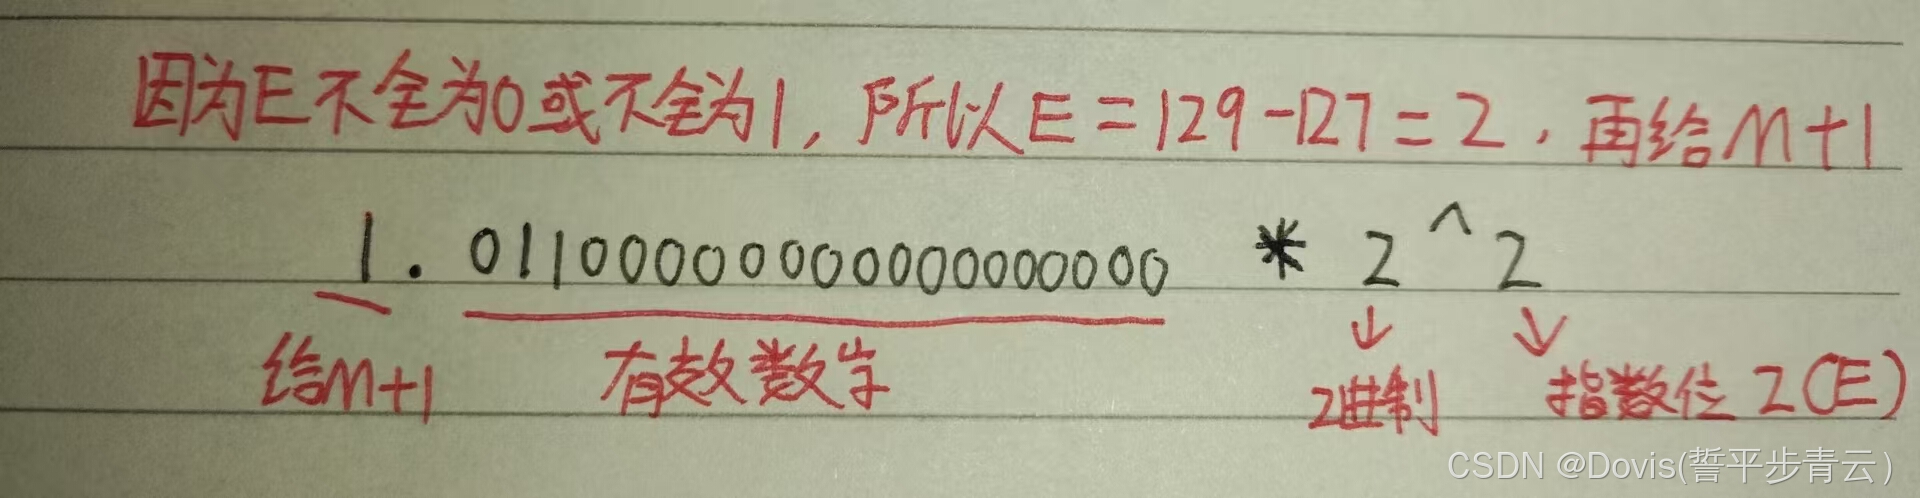 因为E不全为0或不全为1，所以E=129-127=2，再给M+1
1.0110000000000000000 * 2^2
给M+1 有效数字 2进制 指数位 2(E)
CSDN @Dovis(誓平步青云)